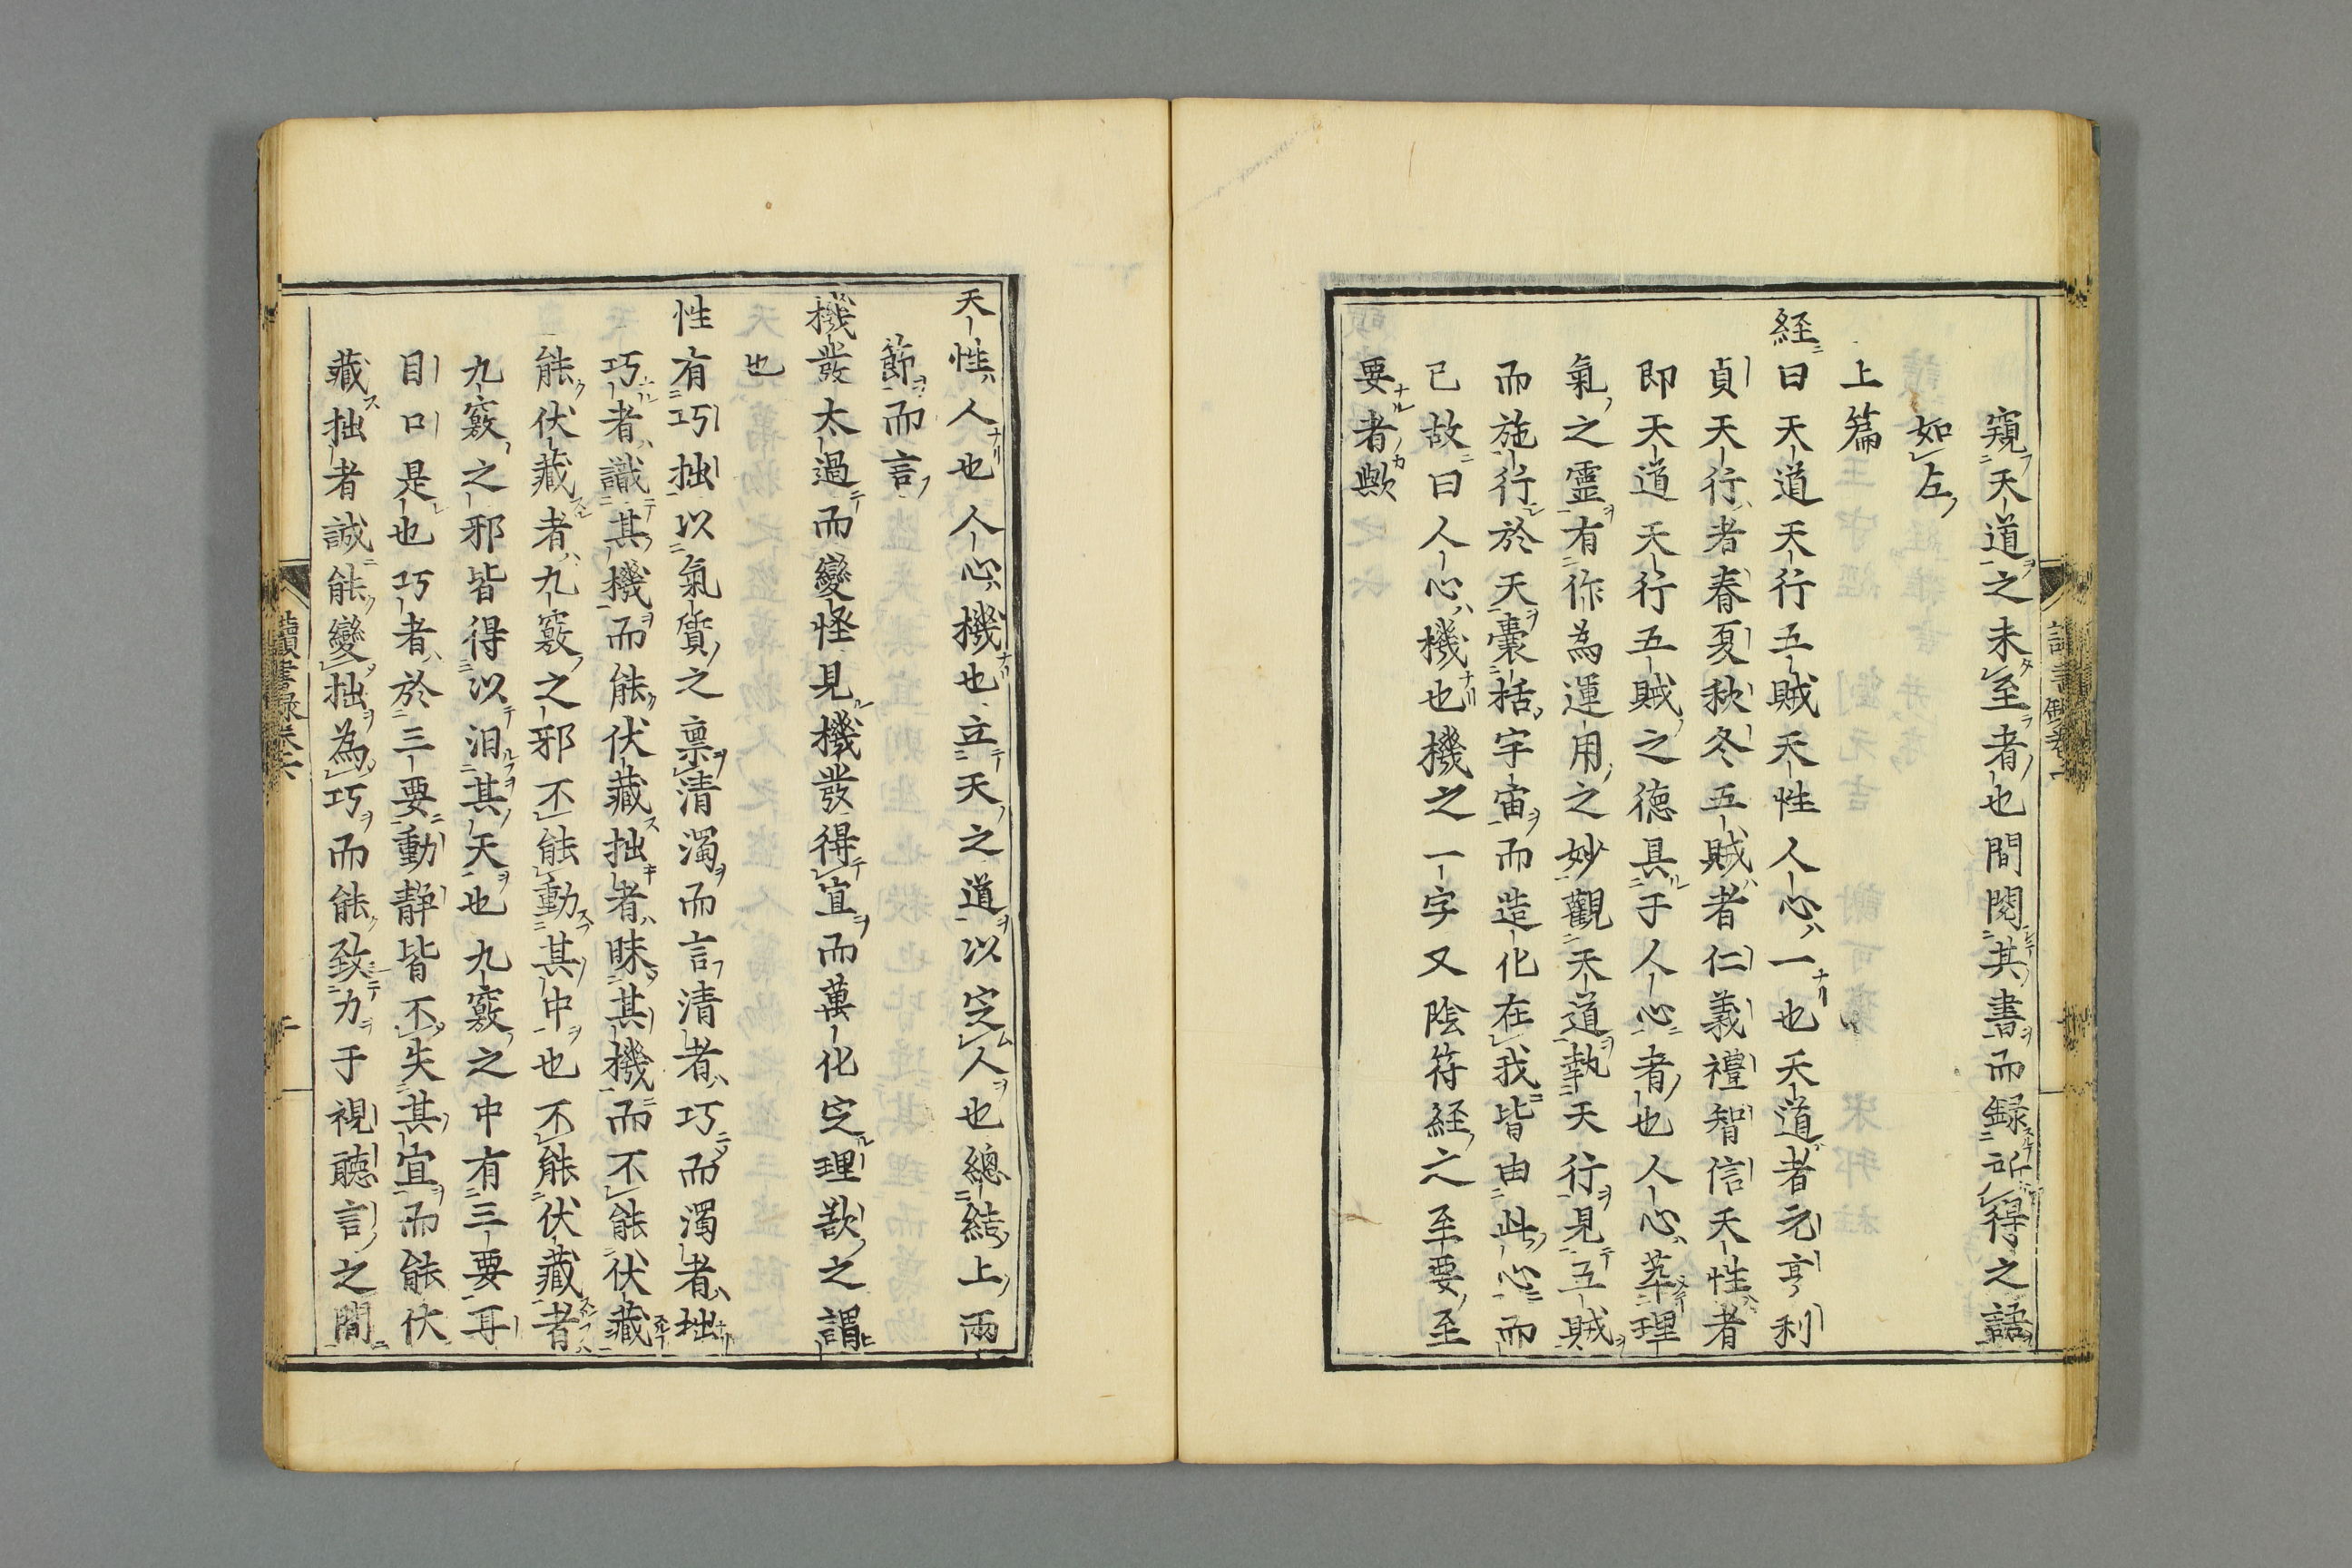 窺天道之未至者也間閱其書而録所得之語
如左
上篇
経曰天道天行五賊天性人心一也天道者元亨利
貞天行者春夏秋冬五賊者仁義禮智信天性者
即天道天行五賊之徳具于人心者也人心萃理
氣之靈有作為運用之妙觀天道執天行見五賊
而施行於天囊括宇宙而造化在我皆由此心而
已故曰人心機也機之一字又陰符経之至要至
要者歟
天性人也人心機也立天之道以定人也總結上兩
節而言
機發太過而變怪見機發得宜而萬化定理欲之謂
也
性有巧拙以氣質之禀清濁而言清者巧而濁者拙
巧者識其機而能伏藏拙者昧其機而不能伏藏
能伏藏者九竅之邪不能動其中也不能伏藏者
九竅之邪皆得以汨其天也九竅之中有三要耳
目口是也巧者於三要動靜皆不失其宜而能伏
藏拙者誠能變拙為巧而能致力于視聽言之間
讀書録卷六